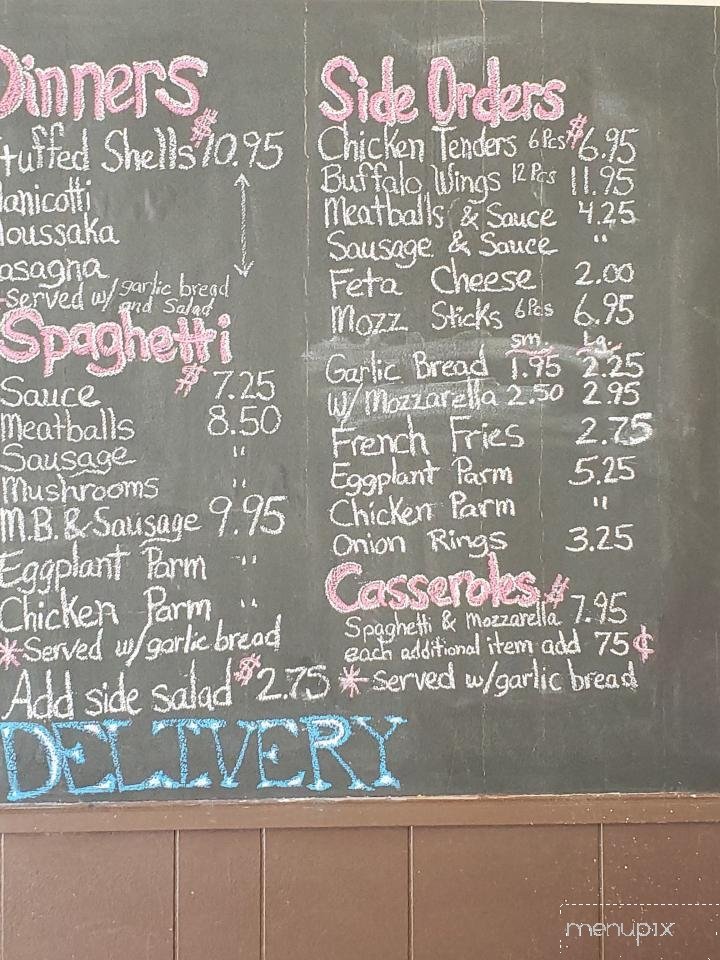 Dinners
tuffed Shells $10.95
anicotti
oussaka
asagna
-served w/ garlic bread
and salad
Spaghetti
Sauce $7.25
Meatballs 8.50
Sausage "
Mushrooms "
M.B. & Sausage 9.95
Eggplant Parm "
Chicken Parm "
*Served w/garlic bread
Add side salad $2.75
DELIVERY
Side Orders
Chicken Tenders 6 Pcs $6.95
Buffalo Wings 12 Pcs 11.95
Meatballs & Sauce 4.25
Sausage & Sauce "
Feta Cheese 2.00
Mozz Sticks 6 Pcs 6.95
sm. Lg.
Garlic Bread 1.95 2.25
w/ Mozzarella 2.50 2.95
French Fries 2.75
Eggplant Parm 5.25
Chicken Parm "
Onion Rings 3.25
Casseroles $
Spaghetti & Mozzarella 7.95
each additional item add 75¢
* served w/garlic bread
menupix